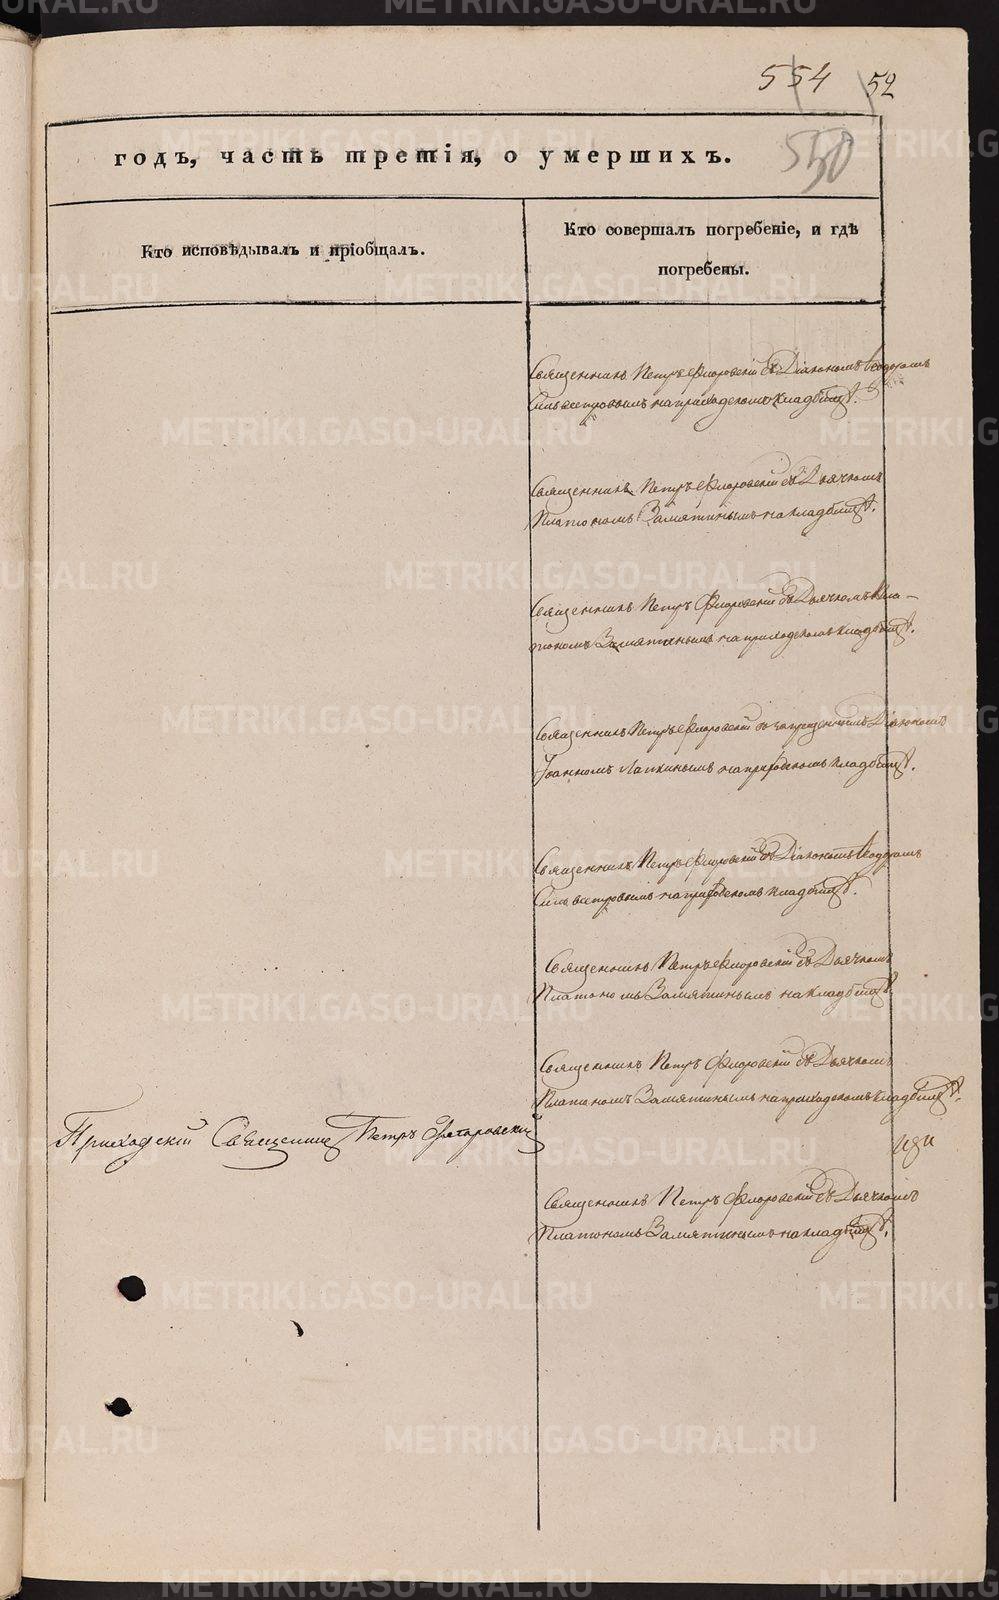 554 52
550
годъ, часть третія, о умершихъ.
Кто исповѣдывалъ и пріобщалъ.
Кто совершалъ погребеніе, и гдѣ
погребены.
Священникъ Петръ Флоровскій съ Діакономъ Ѳеодоромъ
Сильвестровымъ на приходскомъ кладбищѣ.
Священникъ Петръ Флоровскій съ Дьячкомъ
Платономъ Замятинымъ на кладбищѣ.
Священникъ Петръ Флоровскій съ Дьячкомъ Пла-
тономъ Замятинымъ на приходскомъ кладбищѣ.
Священникъ Петръ Флоровскій съ запрещеннымъ Діакономъ
Іоанномъ Лапкинымъ на приходскомъ кладбищѣ.
Священникъ Петръ Флоровскій съ Діакономъ Ѳеодоромъ
Сильвестровымъ на приходскомъ кладбищѣ.
Священникъ Петръ Флоровскій съ Дьячкомъ
Платономъ Замятинымъ на кладбищѣ.
Священникъ Петръ Флоровскій съ Дьячкомъ
Платономъ Замятинымъ на приходскомъ кладбищѣ.
Приходскій Священникъ Петръ Флоровскій
Священникъ Петръ Флоровскій съ Дьячкомъ
Платономъ Замятинымъ на кладбищѣ.
METRIKI.GASO-URAL.RU